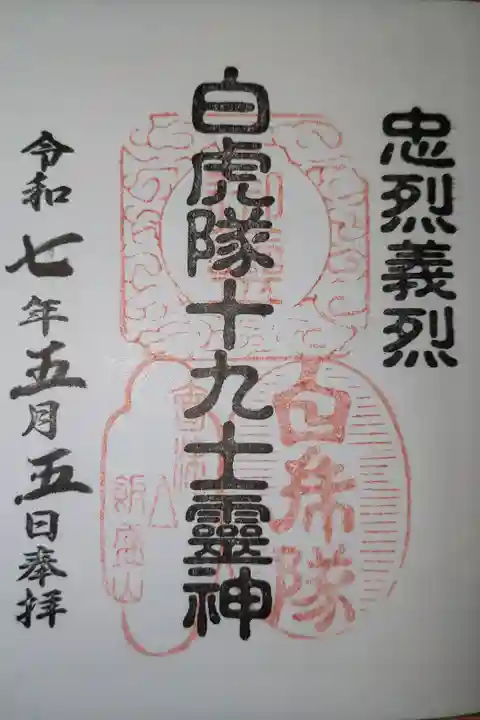 忠烈義烈
白虎隊十九士靈神
令和七年五月五日奉拝
白乕隊
飯盛山